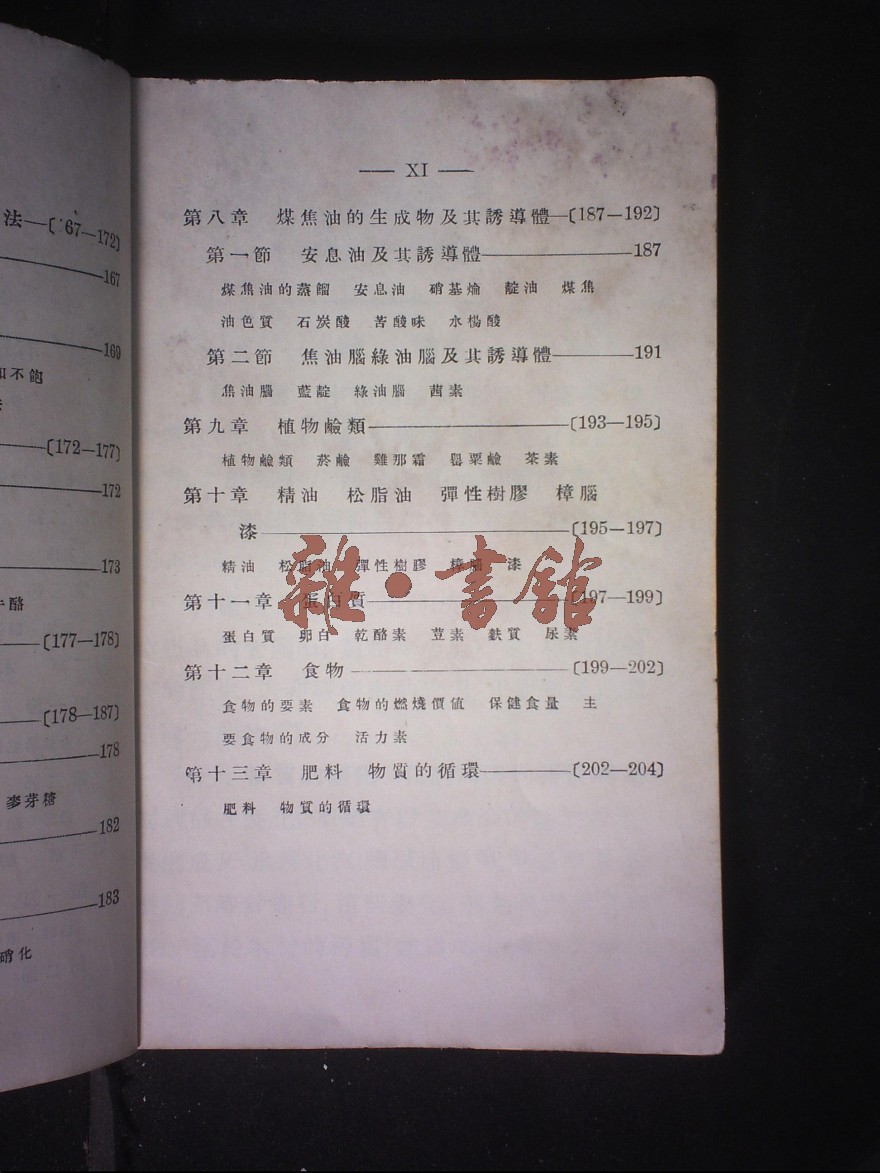 法—〔167—172〕
167
169
和不飽
〔172—177〕
172
173
酪
〔177—178〕
〔178—187〕
178
麥芽糖
182
183
硝化
— XI —
第八章 煤焦油的生成物及其誘導體—〔187—192〕
第一節 安息油及其誘導體————187
煤焦油的蒸餾 安息油 硝基爚 靛油 煤焦
油色質 石炭酸 苦酸味 水楊酸
第二節 焦油腦綠油腦及其誘導體——191
焦油腦 藍靛 綠油腦 茜素
第九章 植物鹼類————〔193—195〕
植物鹼類 菸鹼 雞那霜 罌粟鹼 茶素
第十章 精油 松脂油 彈性樹膠 樟腦
漆————〔195—197〕
精油 松脂油 彈性樹膠 樟腦 漆
第十一章 蛋白質————〔197—199〕
蛋白質 卵白 乾酪素 荳素 麩質 尿素
第十二章 食物————〔199—202〕
食物的要素 食物的燃燒價值 保健食量 主
要食物的成分 活力素
第十三章 肥料 物質的循環————〔202—204〕
肥料 物質的循環
雜·書館